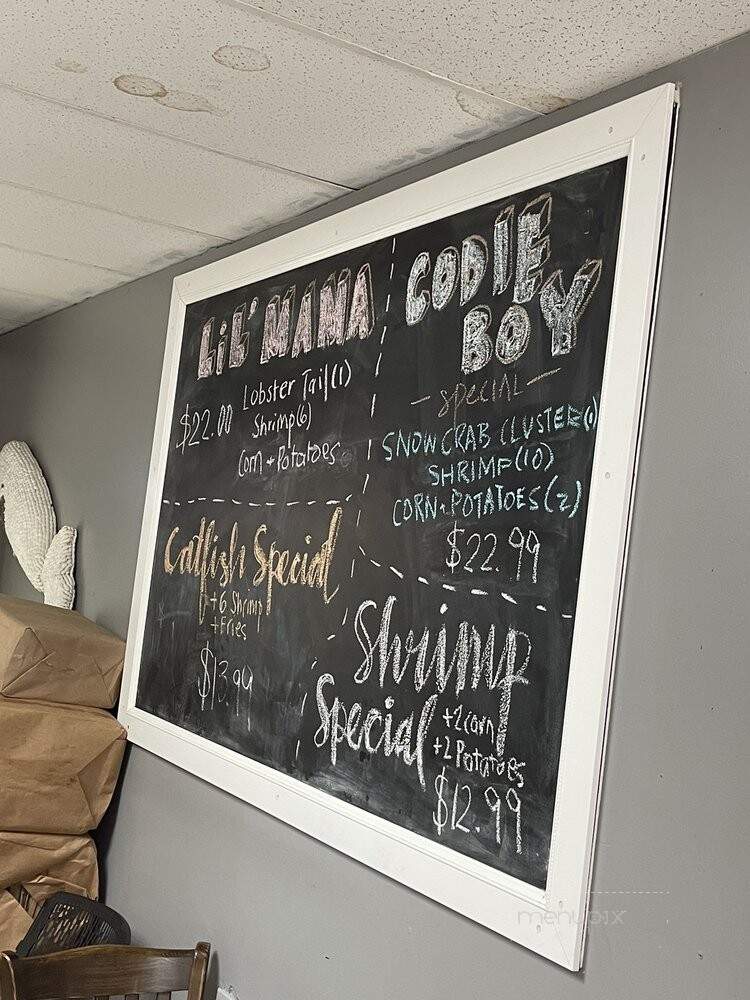 LIL' MAMA
$22.00
Lobster Tail (1)
Shrimp (6)
Corn + Potatoes
CODIE
BOY
- special -
SNOW CRAB CLUSTER (1)
SHRIMP (10)
CORN + POTATOES (2)
$22.99
Catfish Special
+ 6 Shrimp
+ Fries
$13.99
Shrimp
Special
+2 corn
+2 Potatoes
$12.99
menupix